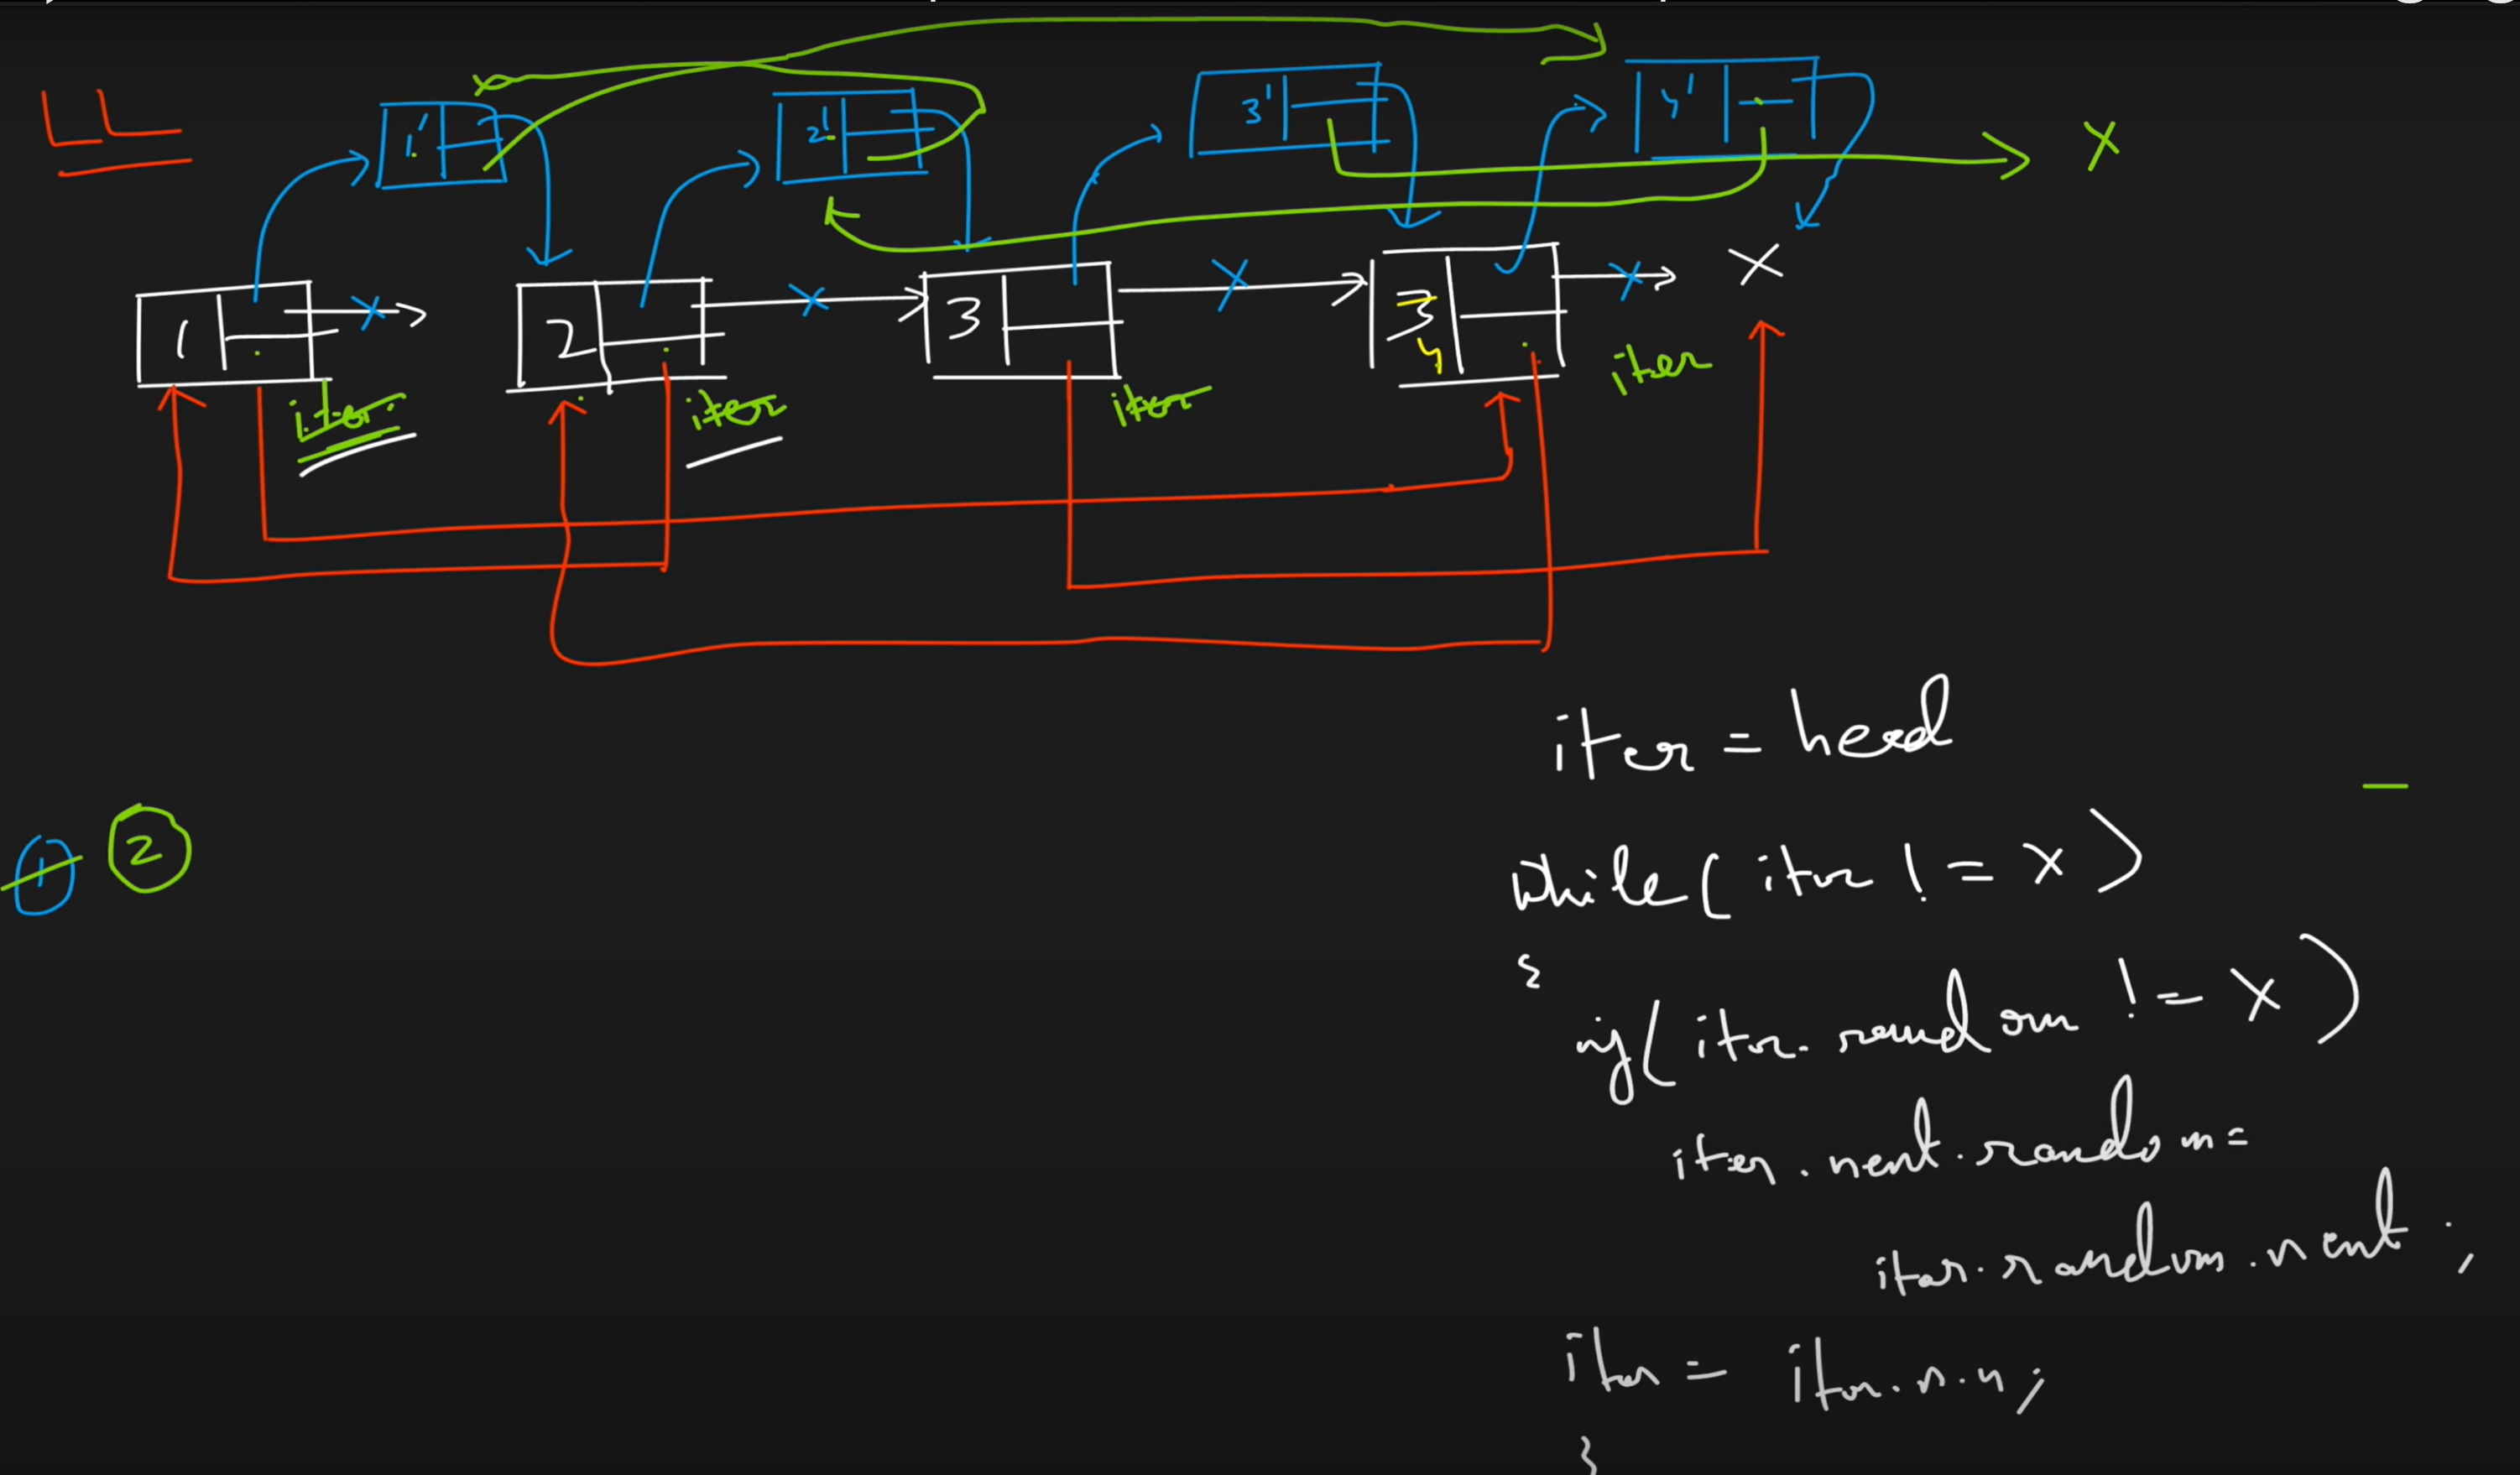 LL
1' 2' 3' 4' X
1 2 3 3 X
4
iter iter iter iter
iter = head
1 2
while( iter != x )
{
if( iter. random != x )
iter . next . random =
iter. random . next ;
iter = iter. n. n ;
}